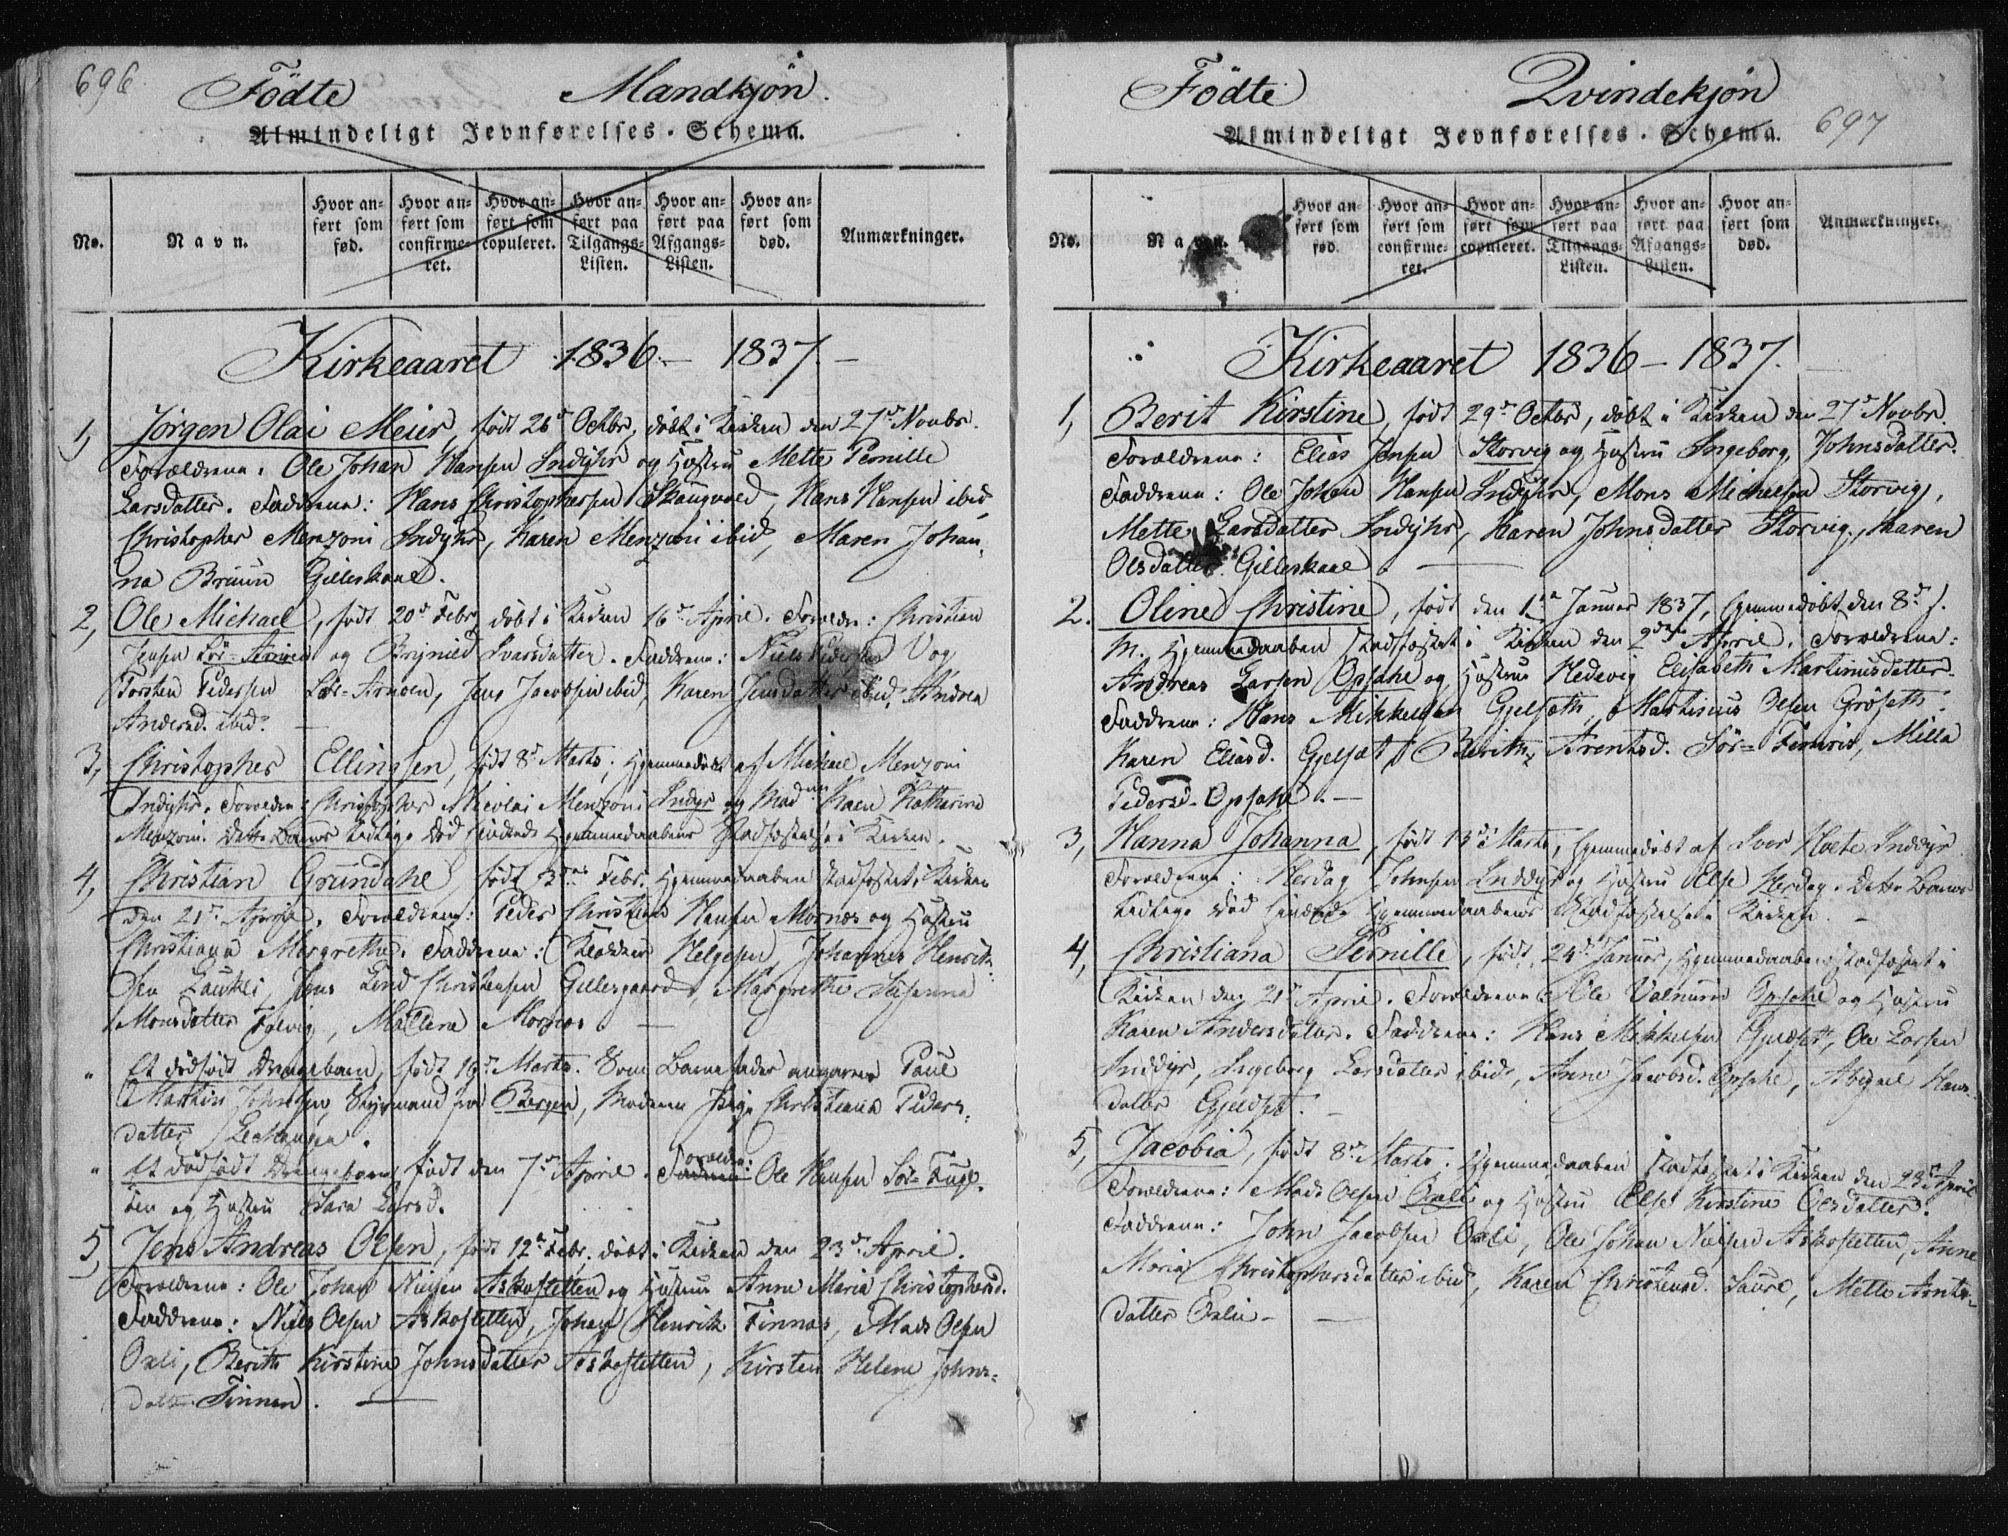 696
Födte Mandkjön.
Almindeligt Jevnførelses-Schema.
No. Navn. Hvor an=ført som fød. Hvor an=ført som confirme=ret. Hvor an=ført som copuleret. Hvor an=ført paa Tilgangs-Listen. Hvor an=ført paa Afgangs-Listen. Hvor an=ført som død. Anmærkninger.
Kirkeaaret 1836 – 1837. –
1, Jörgen Olai Meier, född 26d Octbr, döbt i Kirken den 27d Novbr.
Forældrene: Ole Johan Hansen Indyhr og Hustru Mette Pernille
Larsdatter. Faddrene: Hans Christophersen Skaugvold, Hans Hansen ibid,
Christopher Menzoni Indyhr, Karen Menzoni ibid, Maren Johan,
na Bruun Gilleskaal.
2, Ole Michael, född 20d Febr, döbt i Kirken 16d April. Forældr: Christian
Jensen Sör-Arnöen og Brynild Ivarsdatter. Faddrene: Niels Pedersen Vog
Torsten Pedersen Sör-Arnöen, Jens Jacobsen ibid, Karen Jensdatter ibid, Andrea
Andersd. ibid. –
3, Christopher Ellingsen, född 8d Marts, hjemmedöbt af Michael Menzoni
Indyhr. Forældre: Christopher Nicolai Menzoni Indyr og Mad Karen Katharina
Menzoni. Dette Barns tidlige Död hindrede Hjemmedaabens Stadfæstelse i Kirken.
4, Christian Grundahl, född Febr. Hjemmedaaben stadfæstet i Kirken
den 21d April. Forældrene: Peder Christian Hansen Mornæs og Hustru
Christiana Margrethe. Faddrene: Klokker Helgesen, Johannes Henrik
sen Laukli, Jens Lind Christensen Gillesgaard, Margrethe Susanna
Monsdatter Mallene Mornæs –
" Et dödfödt Drengebarn, född 19d Marts. Som Barnefader angaves Paul
Martin Johnsen, Styrmand fra Bergen, Moderen Pige Christiana Peders,
datter
" Et dödfödt Drengebarn, född den 7d April. Forældre: Ole Hansen Sör-Fugl,
öen og Hustru Sara Larsd.
5, Jens Andreas Olsen, född 12d Febr. döbt i Kirken den 23d April.
Forældrene: Ole Johan Nielsen Askostetten og Hustru Anne Maria Christophersd.
Faddrene: Niels Olsen Askostetten, Johan Henrik Finnæs, Mads Olsen
Oxli, Berith Kirstine Johnsdatter Askostetten, Kirsten Helene Johns=
datter Finnen. –
Födte Qvindekjön
697
Almindeligt Jevnførelses-Schema.
No. Navn. Hvor an=ført som fød. Hvor an=ført som confirme=ret. Hvor an=ført som copuleret. Hvor an=ført paa Tilgangs-Listen. Hvor an=ført paa Afgangs-Listen. Hvor an=ført som død. Anmærkninger.
Kirkeaaret 1836 – 1837.
1, Berit Kirstine, född 29d Octbr, döbt i Kirken den 27d Novbr.
Forældrene: Elias Jensen Storvig og Hustru Ingeborg Johnsdatter.
Faddrene: Ole Johan Hansen Indyhr, Mons Michelsen Storvig,
Mette Larsdatter Indyhr, Karen Johnsdatter Storvig, Maren
Olsdatter Gilleskaal. –
2. Oline Christine, född den 1ste Januar 1837, hjemmedöbt den 8d s.
M. Hjemmedaaben stadfæstet i Kirken den 2den April. Forældrene:
Andreas Larsen Opsahl og Hustru Hedevig Elisabeth Martinusdatter.
Faddrene: Hans Mikkelsen Gjelseth, Martinus Olsen Gröseth,
Karen Eliasd. Gjelset, Berith Arentsd. Sör-Femris, Milla
Pedersd. Opsahl. –
3, Hanna Johanna, född 13d Marts, hjemmedöbt af Iver Hvete Inddyr.
Forældrene: Herdag Johnsen Inddyr og Hustru Else Herdag. Dette Barns
tidlige Död hindrede Hjemmedaabens Stadfæstelse i Kirken. –
4, Christiana Pernille, född 24d Januar, Hjemmedaaben stadfæstet i
Kirken den 21d April. Forældrene: Ole Valnum Opsahl og Hustru
Karen Andersdatter. Faddrene: Hans Mikkelsen Gjelset, Ole Larsen
Inddyr, Ingeborg Larsdatter ibid, Anne Jacobsd. Opsahl, Abigael Hans
datter Gjeldset. –
5, Jacobia, född 8d Marts. Hjemmedaaben stadfæstet i Kirken den 23d April
Forældrene: Mads Olsen Oxli og Hustru Else Kirstine Olsdatter.
Faddrene: John Jacobsen Oxli, Ole Johan Nielsen Askostetten, Anne
Maria Christophersdatter ibid, Karen Christensd. Saure, Mette Arnts=
datter Oxlie – –